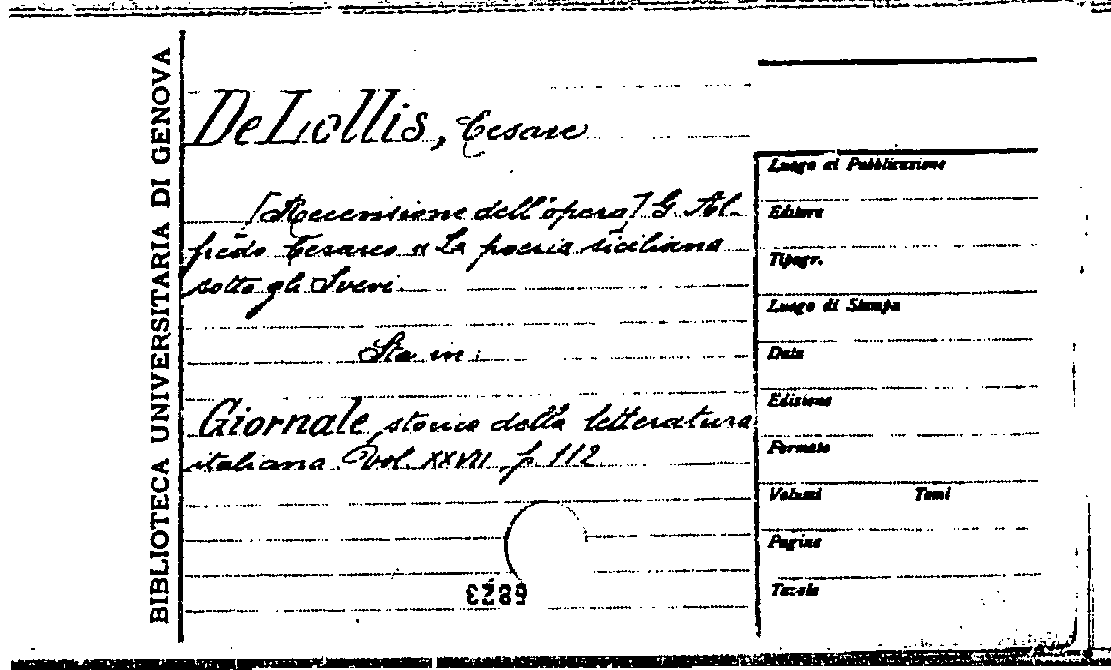 BIBLIOTECA UNIVERSITARIA DI GENOVA
De Lollis, Cesare
[Recensione dell'opera] G. Al-
fredo Cesareo « La poesia siciliana
sotto gli Svevi
Sta in:
Giornale storico della letteratura
italiana. Vol. XXVII, p. 112
Luogo di Pubblicazione
Editore
Tipogr.
Luogo di Stampa
Data
Edizione
Formato
Volumi Tomi
Pagine
Tavole